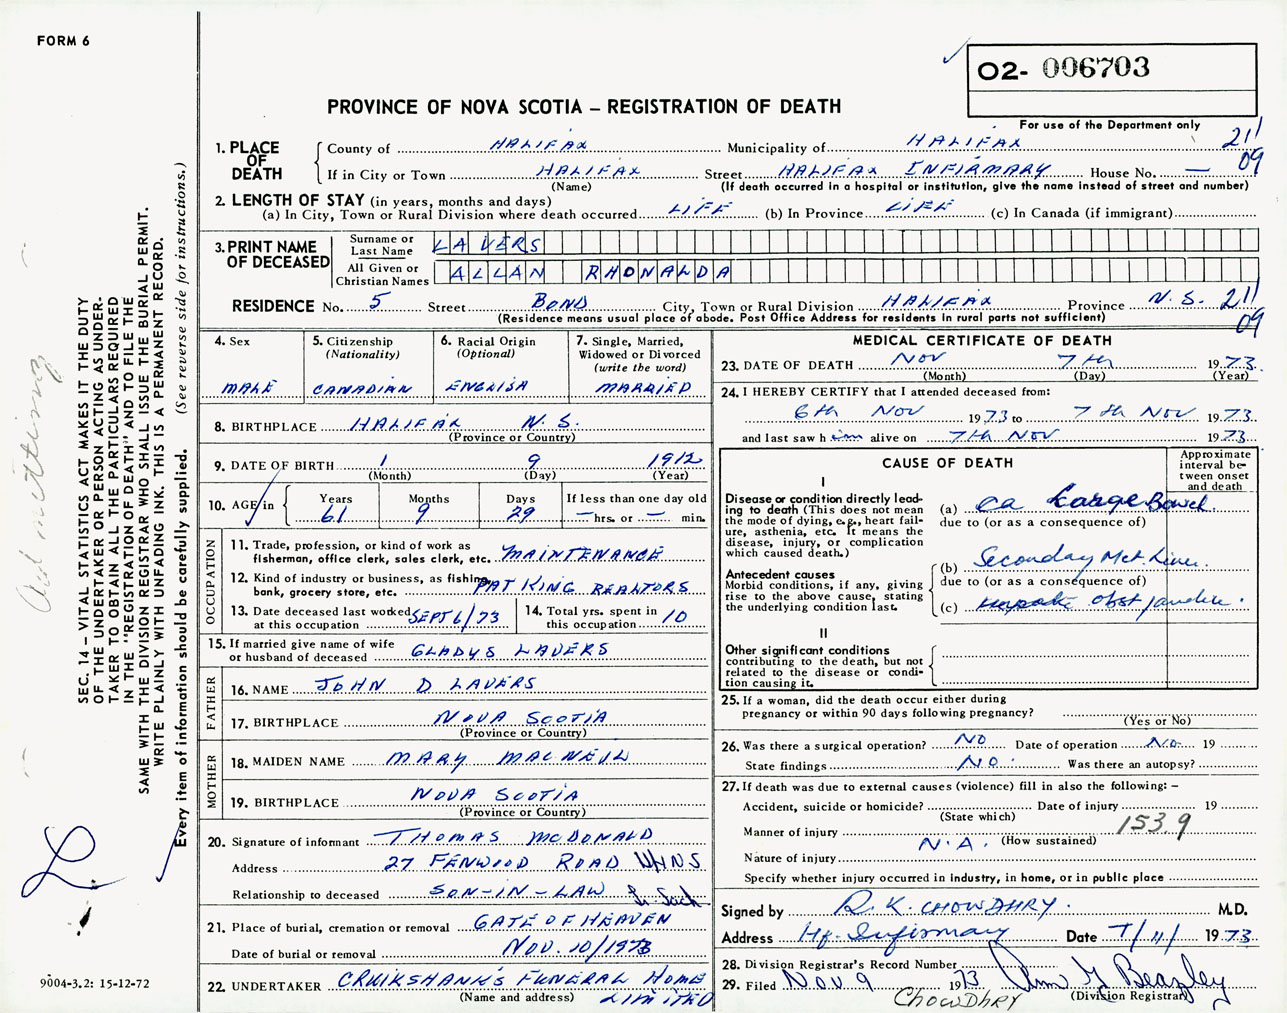 FORM 6
O2- 006703
PROVINCE OF NOVA SCOTIA – REGISTRATION OF DEATH
For use of the Department only
1. PLACE OF DEATH
County of HALIFAX Municipality of HALIFAX 211
If in City or Town HALIFAX Street HALIFAX INFIRMARY House No. — 09
(Name) (If death occurred in a hospital or institution, give the name instead of street and number)
2. LENGTH OF STAY (in years, months and days)
(a) In City, Town or Rural Division where death occurred LIFE (b) In Province LIFE (c) In Canada (if immigrant)
3. PRINT NAME OF DECEASED
Surname or Last Name LAVERS
All Given or Christian Names ALLAN RHONALDA
RESIDENCE No. 5 Street BOND City, Town or Rural Division HALIFAX Province N.S. 211
(Residence means usual place of abode. Post Office Address for residents in rural parts not sufficient) 09
4. Sex
MALE
5. Citizenship
(Nationality)
CANADIAN
6. Racial Origin
(Optional)
ENGLISH
7. Single, Married,
Widowed or Divorced
(write the word)
MARRIED
8. BIRTHPLACE HALIFAX N.S.
(Province or Country)
9. DATE OF BIRTH 1 9 1912
(Month) (Day) (Year)
10. AGE in
Years Months Days If less than one day old
61 9 29 — hrs. or — min.
OCCUPATION
11. Trade, profession, or kind of work as
fisherman, office clerk, sales clerk, etc. MAINTENANCE
12. Kind of industry or business, as fishing,
bank, grocery store, etc. PAT KING REALTORS
13. Date deceased last worked
at this occupation SEPT 6/73
14. Total yrs. spent in
this occupation 10
15. If married give name of wife
or husband of deceased GLADYS LAVERS
FATHER
16. NAME JOHN D LAVERS
17. BIRTHPLACE NOVA SCOTIA
(Province or Country)
MOTHER
18. MAIDEN NAME MARY MACNEIL
19. BIRTHPLACE NOVA SCOTIA
(Province or Country)
20. Signature of informant THOMAS MCDONALD
Address 27 FENWOOD ROAD
Relationship to deceased SON-IN-LAW
21. Place of burial, cremation or removal GATE OF HEAVEN
Date of burial or removal NOV. 10/1973
22. UNDERTAKER CRUIKSHANK'S FUNERAL HOME
(Name and address) LIMITED
MEDICAL CERTIFICATE OF DEATH
23. DATE OF DEATH NOV 7th 1973
(Month) (Day) (Year)
24. I HEREBY CERTIFY that I attended deceased from:
6th NOV 1973 to 7th NOV 1973
and last saw him alive on 7th NOV 1973
CAUSE OF DEATH
Approximate
interval be-
tween onset
and death
I
Disease or condition directly lead-
ing to death (This does not mean
the mode of dying, e.g., heart fail-
ure, asthenia, etc. It means the
disease, injury, or complication
which caused death.)
(a) Ca Large Bowel
due to (or as a consequence of)
Antecedent causes
Morbid conditions, if any, giving
rise to the above cause, stating
the underlying condition last.
(b) Seconday Met. Liver.
due to (or as a consequence of)
(c) obst jaundice.
II
Other significant conditions
contributing to the death, but not
related to the disease or condi-
tion causing it.
25. If a woman, did the death occur either during
pregnancy or within 90 days following pregnancy?
(Yes or No)
26. Was there a surgical operation? NO Date of operation No. 19
State findings NO. Was there an autopsy?
27. If death was due to external causes (violence) fill in also the following: –
Accident, suicide or homicide? Date of injury 19
(State which)
Manner of injury 153.9
N.A. (How sustained)
Nature of injury
Specify whether injury occurred in industry, in home, or in public place
Signed by R. K. CHOWDHRY. M.D.
Address Hfx. Infirmary Date 7/11/ 1973
28. Division Registrar's Record Number
29. Filed Nov 9 1973 Beazley
(Division Registrar)
CHOWDHRY
SEC. 14 – VITAL STATISTICS ACT MAKES IT THE DUTY
OF THE UNDERTAKER OR PERSON ACTING AS UNDER-
TAKER TO OBTAIN ALL THE PARTICULARS REQUIRED
IN THE "REGISTRATION OF DEATH" AND TO FILE THE
SAME WITH THE DIVISION REGISTRAR WHO SHALL ISSUE THE BURIAL PERMIT.
WRITE PLAINLY WITH UNFADING INK. THIS IS A PERMANENT RECORD.
Every item of information should be carefully supplied. (See reverse side for instructions.)
9004-3.2: 15-12-72